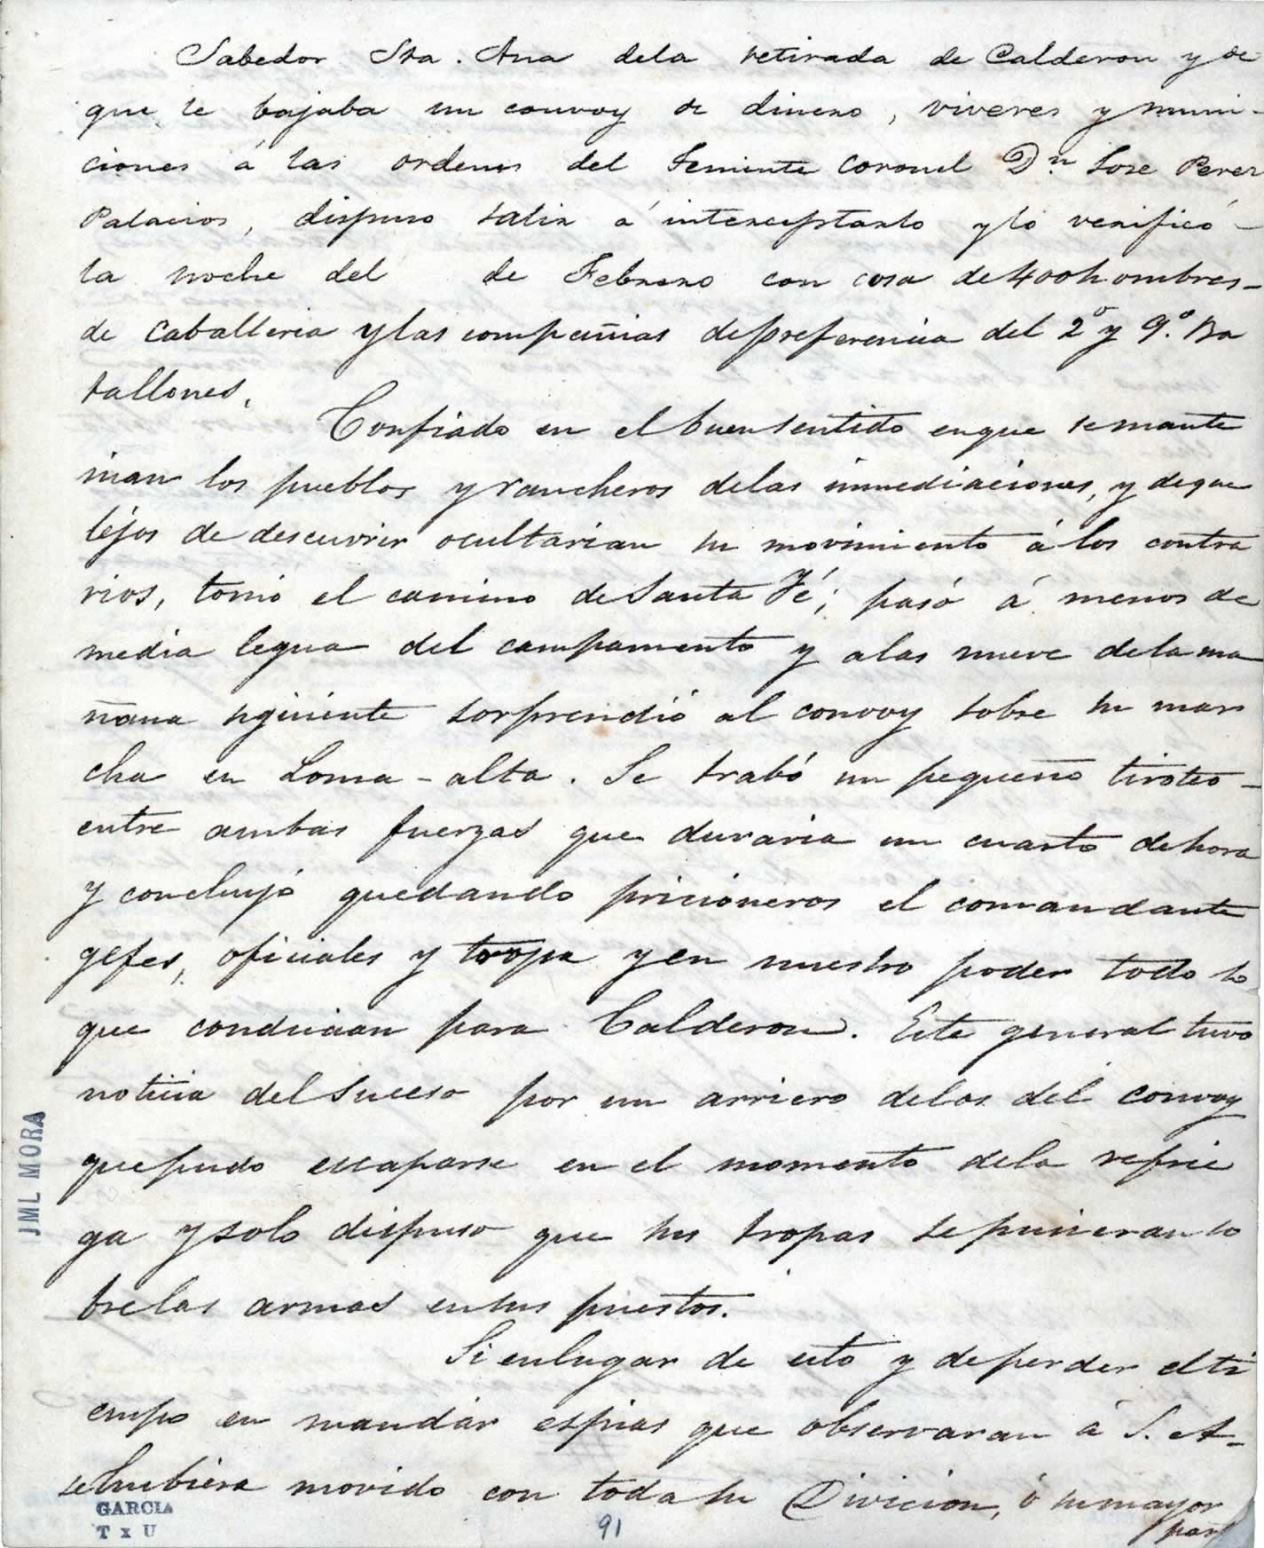 Sabedor Sta. Ana dela retirada de Calderon y de
que le bajaba un convoy de dinero, viveres y muni-
ciones á las ordenes del Teniente Coronel Dn. Jose Perez
Palacios, dispuso salir á interceptarlo y lo verificó-
la noche del de Febrero con cosa de 400 hombres-
de Caballeria y las compañias de preferencia del 2º y 9º. Ba
tallones.
Confiado en el buen sentido en que se mante
nian los pueblos y rancheros delas inmediaciones, y de que
lejos de descuvrir ocultarian su movimiento á los contra
rios, tomó el camino de Santa Fé; pasó á menos de
media legua del campamento y a las nueve dela ma
ñana siguiente sorprendió al convoy sobre su mar
cha en Loma-alta. Se trabó un pequeño tiroteo-
entre ambas fuerzas que duraria un cuarto de hora
y concluyó quedando pricioneros el comandante
gefes, oficiales y tropa y en nuestro poder todo lo
que conducian para Calderon. Este general tuvo
noticia del suceso por un arriero delos del convoy
que pudo escaparse en el momento dela refrie
ga y solo dispuso que sus tropas se pusieran so
bre las armas en sus puestos.
Si en lugar de esto y de perder el ti
empo en mandar espias que observaran á S. A-
se hubiera movido con toda su Divicion, ó su mayor
part
JML MORA
GARCIA
T x U
91